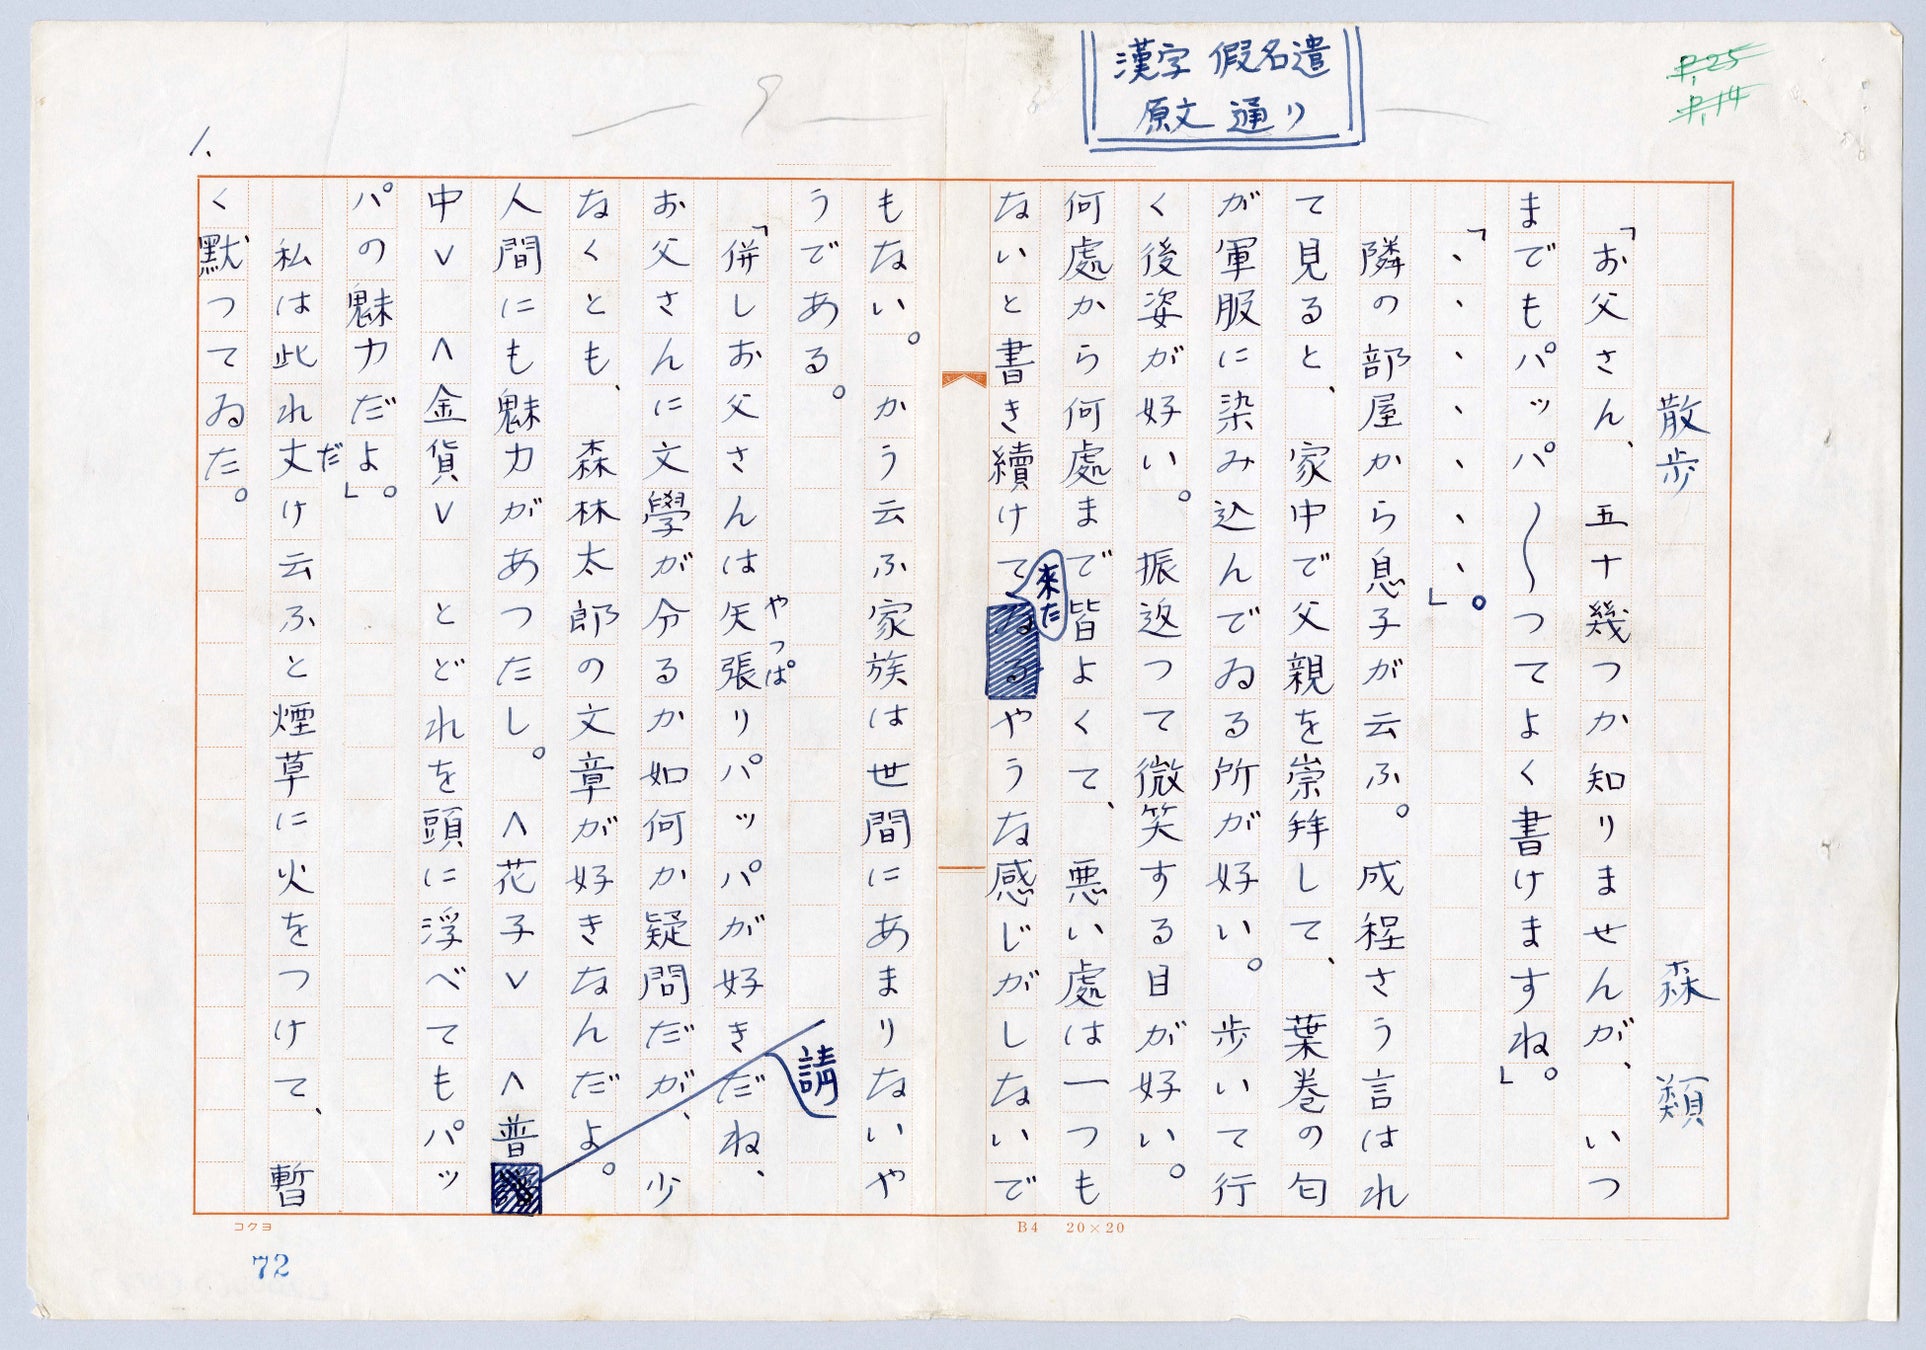 漢字 假名遣
原文 通り
P.25
P.14
1.
散歩　森　類
「お父さん、五十幾つか知りませんが、いつ
までもパッパ〜〜つてよく書けますね。」
「、、、、、、、」。
隣の部屋から息子が云ふ。成程さう言はれ
て見ると、家中で父親を崇拝して、葉巻の匂
が軍服に染み込んでゐる所が好い。歩いて行
く後姿が好い。振返つて微笑する目が好い。
何處か­ら何處まで皆よくて、悪い處は一つも
ないと書き續けて来たやうな感じがしないで
もない。かう云ふ家族は世間にあまりないや
うである。
「併しお父さんは矢張りパッパが好きだね、
やっぱ
お父さんに文學が分るか如何か疑問だが、少
なくとも、森林太郎の文章が好きなんだよ。
人間にも魅力があつたし。＜花子＞＜普請
中＞＜金貨＞とどれを頭に浮べてもパッ
パの魅力だよ」。
私は此れ丈け云ふと煙草に火をつけて、暫
だ
く黙つてゐた。
コクヨ
B4 20×20
72